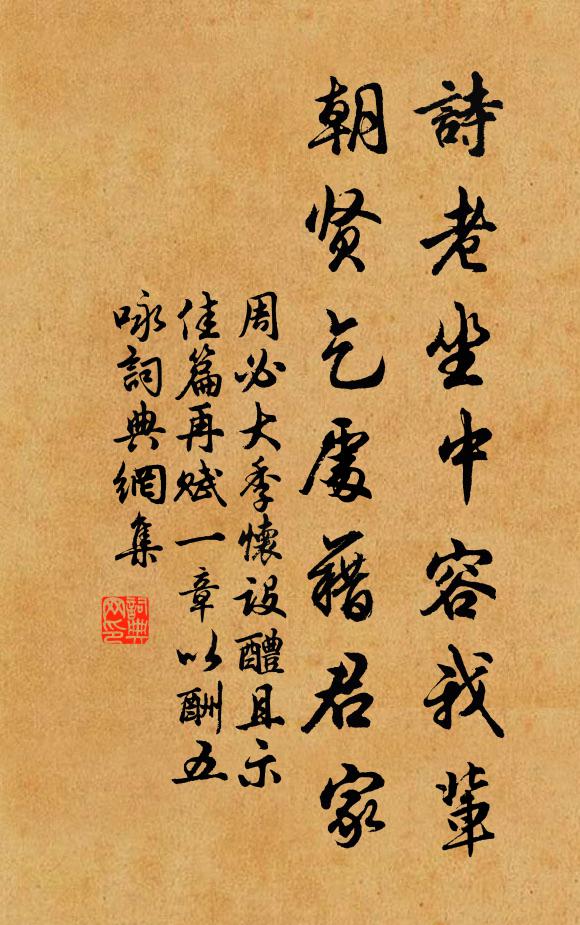 詩老坐中容我輩
朝贤乞處藉君家
周必大季懷设醴且示
佳篇再赋一章以酬五
咏詞典網集
詞典
网印